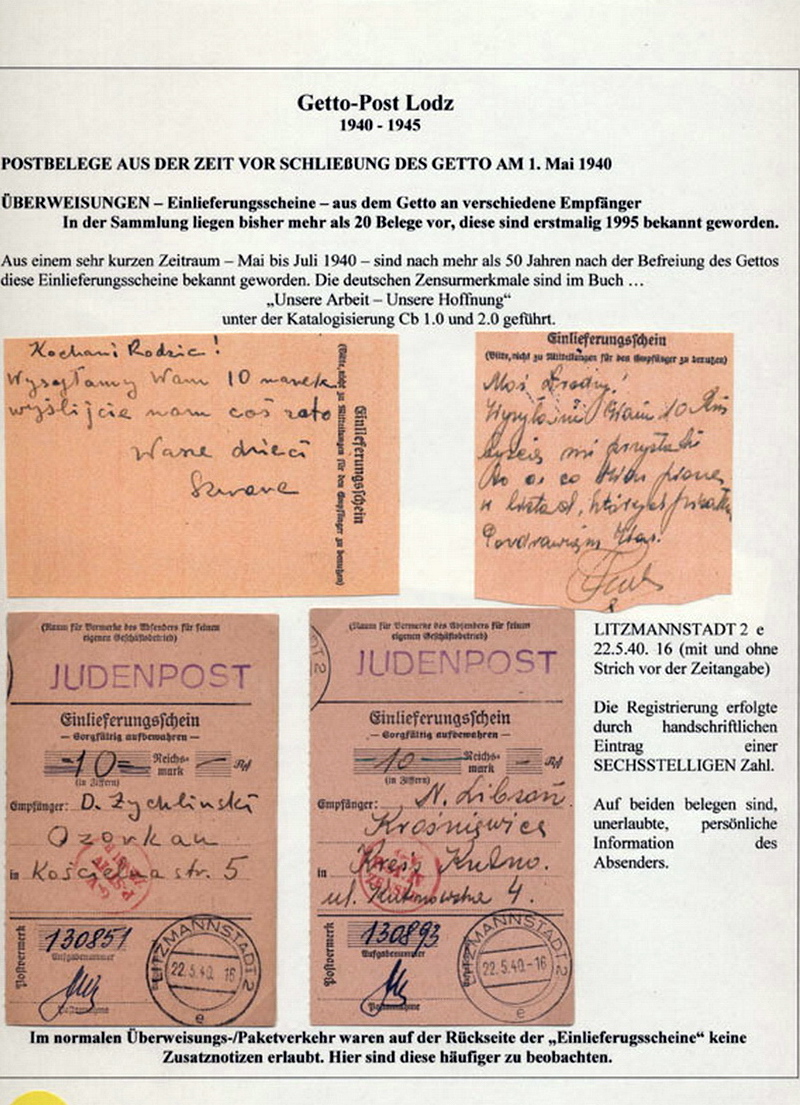 Getto-Post Lodz
1940 - 1945
POSTBELEGE AUS DER ZEIT VOR SCHLIEßUNG DES GETTO AM 1. Mai 1940
ÜBERWEISUNGEN – Einlieferungsscheine – aus dem Getto an verschiedene Empfänger
In der Sammlung liegen bisher mehr als 20 Belege vor, diese sind erstmalig 1995 bekannt geworden.
Aus einem sehr kurzen Zeitraum – Mai bis Juli 1940 – sind nach mehr als 50 Jahren nach der Befreiung des Gettos
diese Einlieferungsscheine bekannt geworden. Die deutschen Zensurmerkmale sind im Buch …
„Unsere Arbeit – Unsere Hoffnung“
unter der Katalogisierung Cb 1.0 und 2.0 geführt.
Kochani Rodzice!
Wysyłamy Wam 10 marek
wyślijcie nam coś zato
Wasze dzieci
Einlieferungsschein
(Bitte, nicht zu Mitteilungen für den Empfänger zu benutzen)
Einlieferungsschein
(Bitte, nicht zu Mitteilungen für den Empfänger zu benutzen)
Moi Drodzy!
Wam 10
(Raum für Vermerke des Absenders für seinen
eigenen Geschäftsbetrieb)
JUDENPOST
Einlieferungsschein
– Sorgfältig aufbewahren –
10 Reichs-
mark
(in Ziffern)
Empfänger: D. Zychlinski
Ozorkau
in Kościelna str. 5
Postvermerk
130851
Aufgabenummer
LITZMANNSTADT 2
22.5.40 16
e
Postannahme
(Raum für Vermerke des Absenders für seinen
eigenen Geschäftsbetrieb)
JUDENPOST
Einlieferungsschein
– Sorgfältig aufbewahren –
10 Reichs-
mark
(in Ziffern)
Empfänger: N. Libson
Krośniewice
in Kreis Kutno.
ul. Kutnowska 4.
Postvermerk
130893
Aufgabenummer
LITZMANNSTADT 2
22.5.40-16
e
Postannahme
LITZMANNSTADT 2 e
22.5.40. 16 (mit und ohne
Strich vor der Zeitangabe)
Die Registrierung erfolgte
durch handschriftlichen
Eintrag einer
SECHSSTELLIGEN Zahl.
Auf beiden belegen sind,
unerlaubte, persönliche
Information des
Absenders.
Im normalen Überweisungs-/Paketverkehr waren auf der Rückseite der „Einlieferugsscheine“ keine
Zusatznotizen erlaubt. Hier sind diese häufiger zu beobachten.